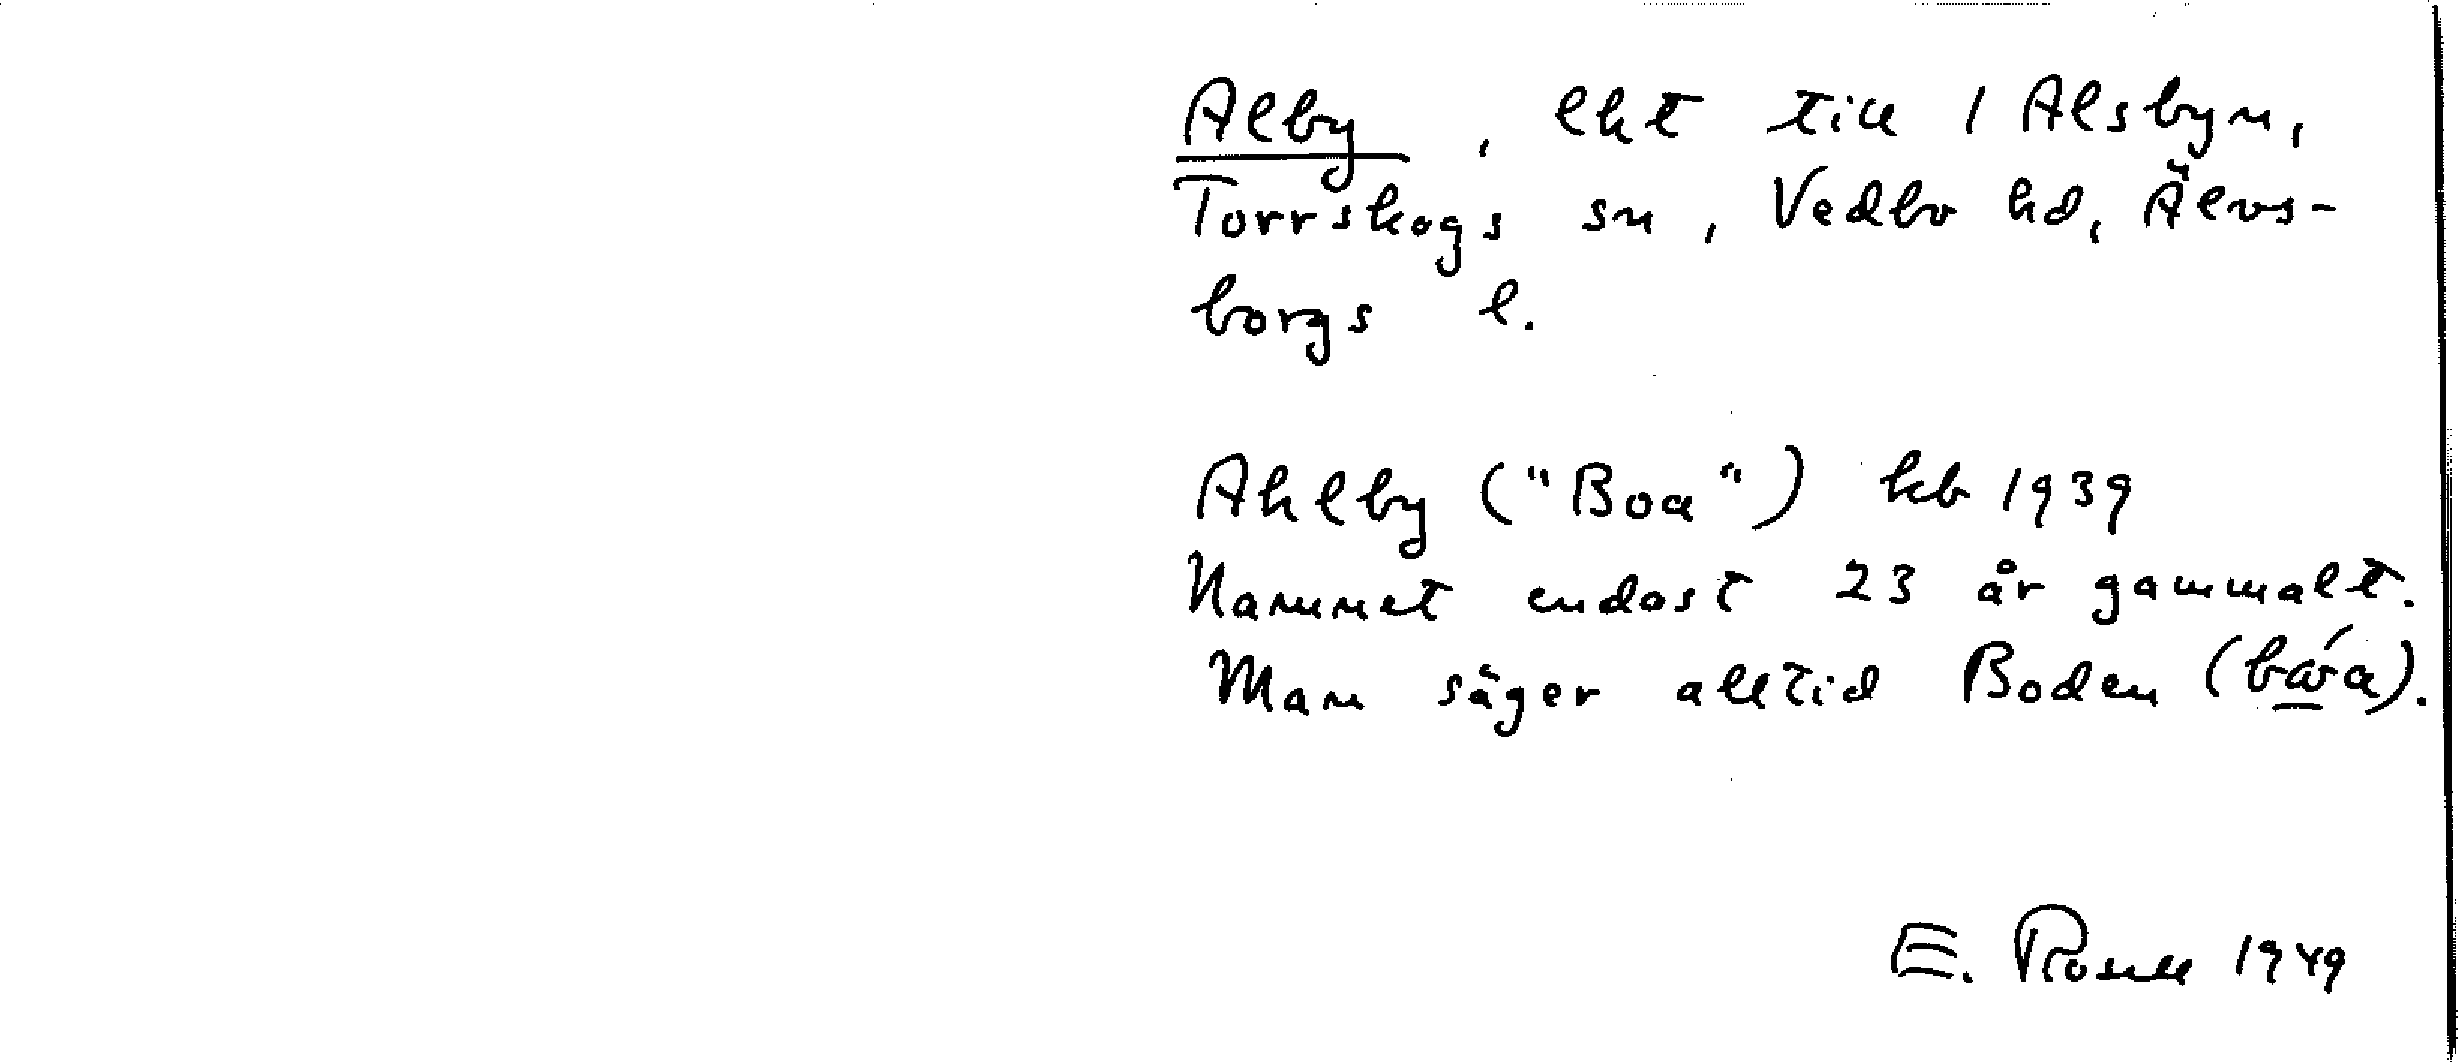 Alby, lht till 1 Alsbyn,
Torrskogs sn, Vedbo hd, Älvs-
borgs l.
Ahlby ("Boa") kb 1939
Namnet endast 23 år gammalt.
Man säger alltid Boden ( ).
E. Rosell 1949